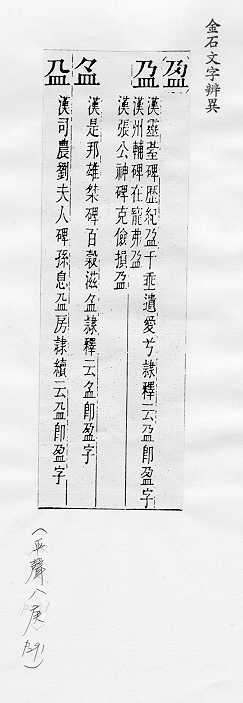 金石文字辨異
盈
盁
漢靈臺碑歷紀盁千垂遺愛兮隸釋云盁即盈字
漢州輔碑在寵弗盁
漢張公神碑克儉損盁
漢是邦雄桀碑百穀滋 隸釋云 即盈字
漢司農劉夫人碑孫息 房隸續云 即盈字
(平聲八庚 )